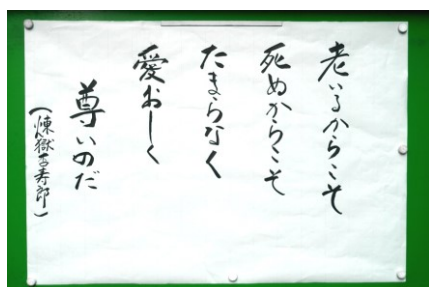 老いるからこそ
死ぬからこそ
たまらなく
愛おしく
尊いのだ
（煉獄杏寿郎）